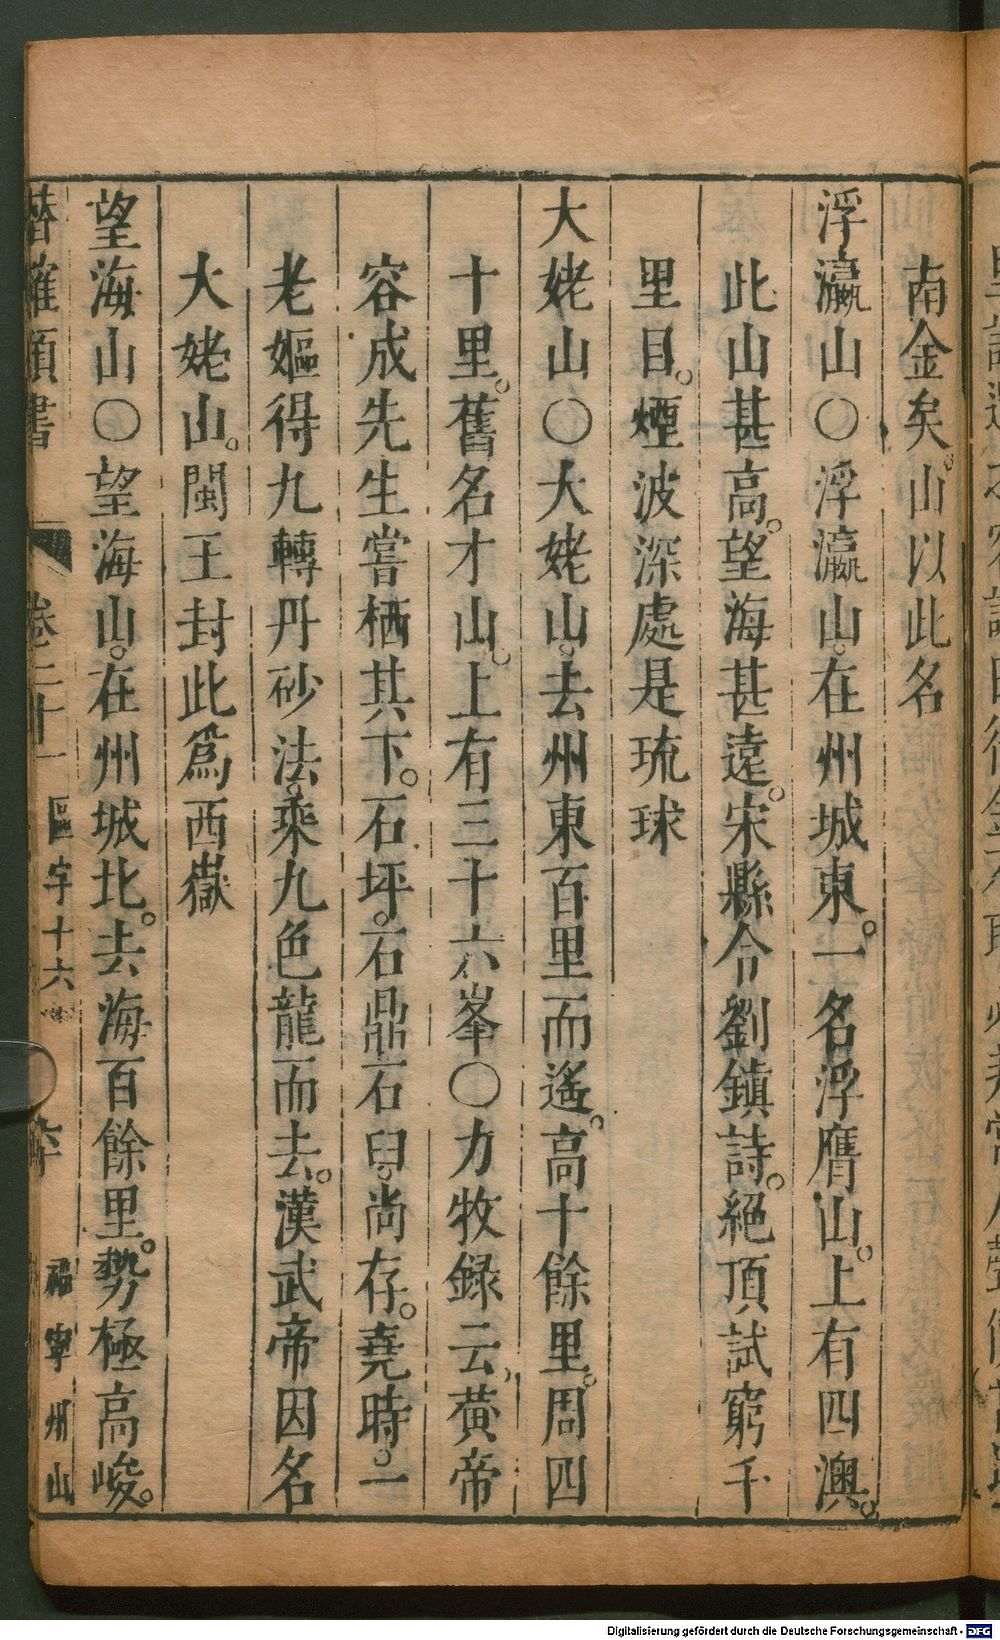 南金矣。山以此名
浮瀛山○浮瀛山。在州城東。一名浮膺山。上有四澳。
此山甚高。望海甚遠。宋縣令劉鎮詩。絕頂試窮千
里目。煙波深處是琉球
大姥山○大姥山。去州東百里而遙。高十餘里。周四
十里。舊名才山。上有三十六峯○力牧録云、黄帝
容成先生嘗栖其下。石坪。石鼎石臼。尚存。堯時。一
老嫗得九轉丹砂法。乘九色龍而去。漢武帝因名
大姥山。閩王封此爲西嶽
望海山○望海山。在州城北。去海百餘里。勢極高峻。
潛確類書 卷二十一 區宇十六 福寧州山
Digitalisierung gefördert durch die Deutsche Forschungsgemeinschaft - DFG